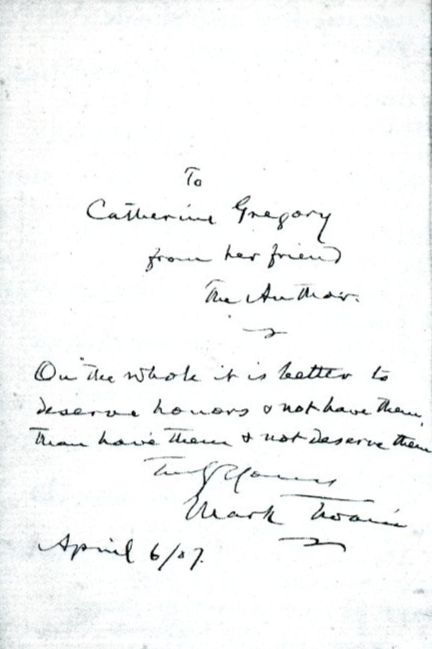 To
Catherine Gregory
from her friend
The Author.
On the whole it is better to
deserve honors & not have them,
than have them & not deserve them
Truly Yours
Mark Twain
April 6/07.